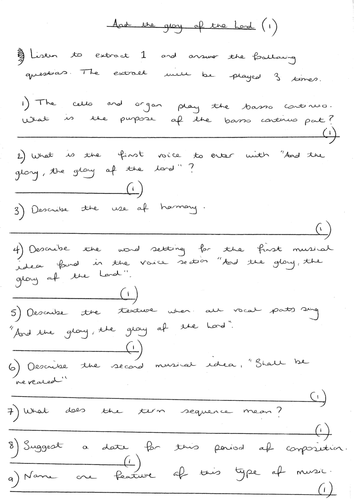 And the glory of the Lord (1)
Listen to extract 1 and answer the following
questions. The extract will be played 3 times.
1) The cello and organ play the basso continuo.
What is the purpose of the basso continuo part?
(1)
2) What is the first voice to enter with "And the
glory, the glory of the lord"?
(1)
3) Describe the use of harmony.
(1)
4) Describe the word setting for the first musical
idea found in the voice section "And the glory, the
glory of the Lord".
(1)
5) Describe the texture when all vocal parts sing
"And the glory, the glory of the Lord".
(1)
6) Describe the second musical idea, "Shall be
revealed"
(1)
7) What does the term sequence mean?
(1)
8) Suggest a date for this period of composition.
(1)
9) Name one feature of this type of music.
(1)